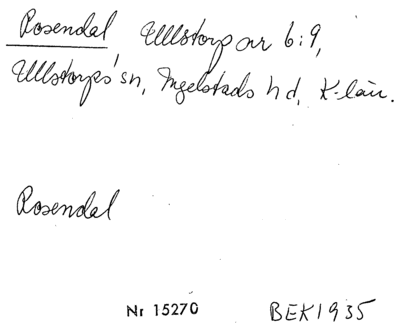 Rosendal Ullstorp nr 6:9,
Ullstorps sn, Ingelstads hd, K-län.
Rosendal
Nr 15270 BEK1935